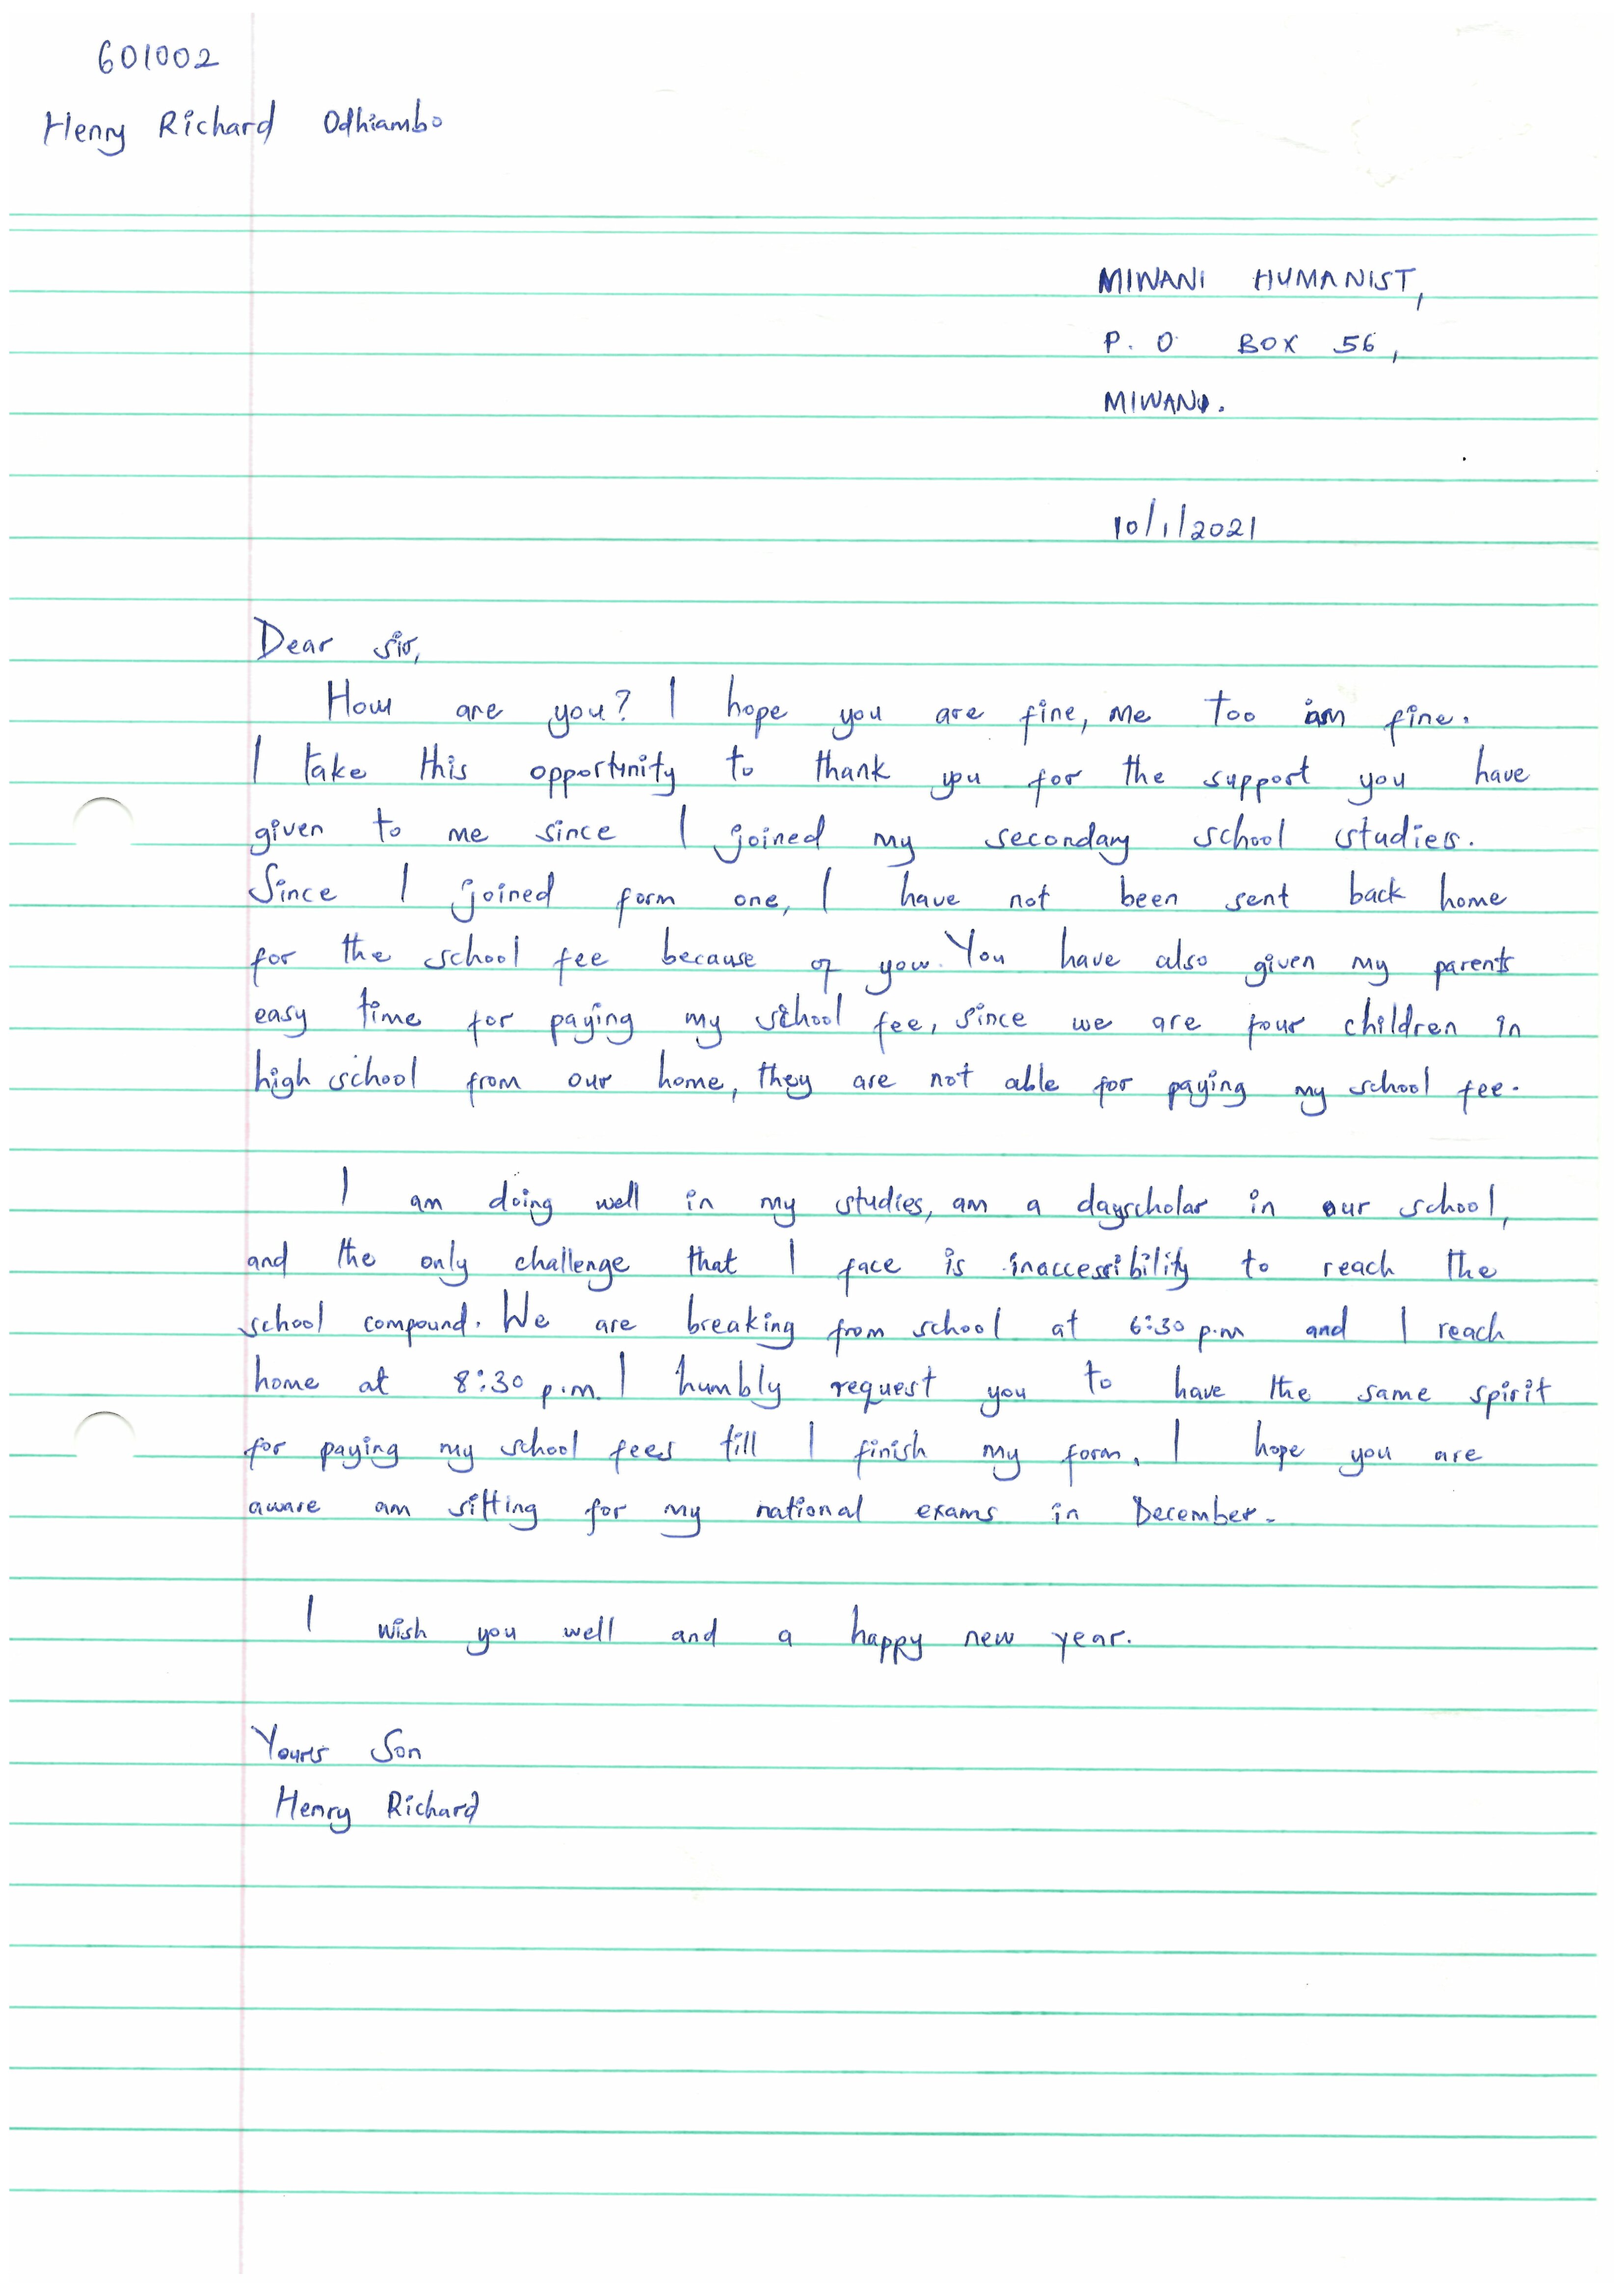 601002
Henry Richard Odhiambo
MIWANI HUMANIST,
P. O. BOX 56,
MIWANI.
10/1/2021
Dear Sir,
How are you? I hope you are fine, me too am fine.
I take this opportunity to thank you for the support you have
given to me since I joined my secondary school studies.
Since I joined form one, I have not been sent back home
for the school fee because of you. You have also given my parents
easy time for paying my school fee, since we are four children in
high school from our home, they are not able for paying my school fee.
I am doing well in my studies, am a dayscholar in our school,
and the only challenge that I face is inaccessibility to reach the
school compound. We are breaking from school at 6:30 p.m and I reach
home at 8:30 p.m. I humbly request you to have the same spirit
for paying my school fees till I finish my form. I hope you are
aware am sitting for my national exams in December.
I wish you well and a happy new year.
Yours Son
Henry Richard